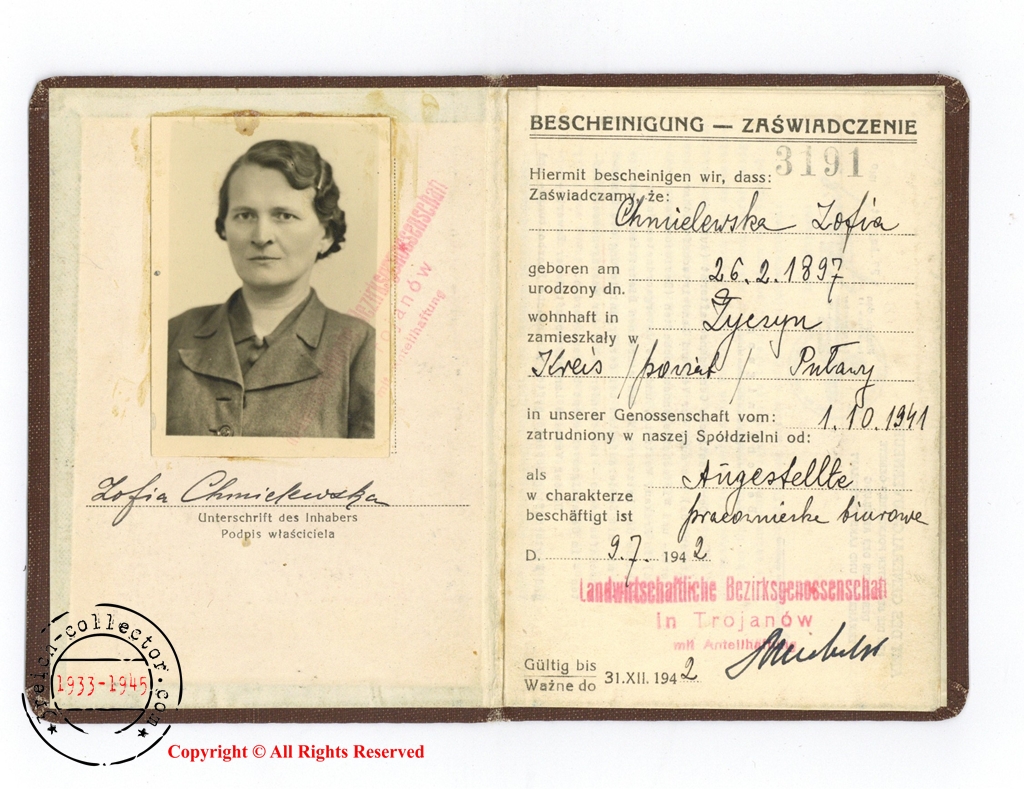 Bezirksgenossenschaft
Trojanów
Anteilhaftung
Zofia Chmielewska
Unterschrift des Inhabers
Podpis właściciela
BESCHEINIGUNG — ZAŚWIADCZENIE
3191
Hiermit bescheinigen wir, dass:
Zaświadczamy że:
Chmielewska Zofia
geboren am 26.2.1897
urodzony dn.
wohnhaft in Życzyn
zamieszkały w
Kreis / powiat / Puławy
in unserer Genossenschaft vom: 1.10.1941
zatrudniony w naszej Spółdzielni od:
als Angestellte
w charakterze
beschäftigt ist pracownicska biurowe
D. 9.7. 1942
Landwirtschaftliche Bezirksgenossenschaft
in Trojanów
mit Anteilhaftung
Gültig bis
Ważne do 31.XII. 1942
reich-collector.com
1933-1945
Copyright © All Rights Reserved